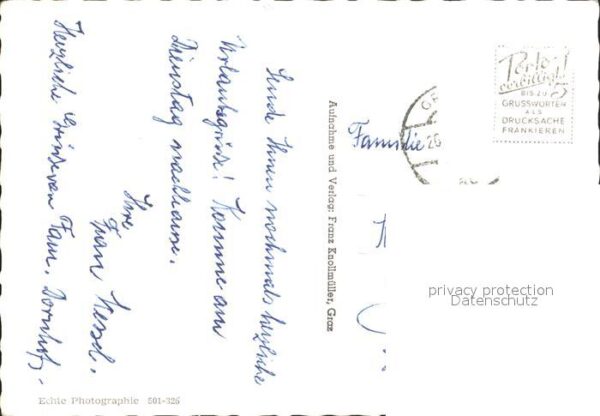 Sende Ihnen nochmals herzliche
Urlaubsgrüße! Komme am
Dienstag nachhause.
Ihre
Frau Wessel.
Herzliche Grüße von Fam.
Aufnahme und Verlag: Franz Knollmüller, Graz
Echte Photographie 501-326
Porto
verbilligt!
BIS ZU 5
GRUSSWORTEN
ALS
DRUCKSACHE
FRANKIEREN
Familie
privacy protection
Datenschutz